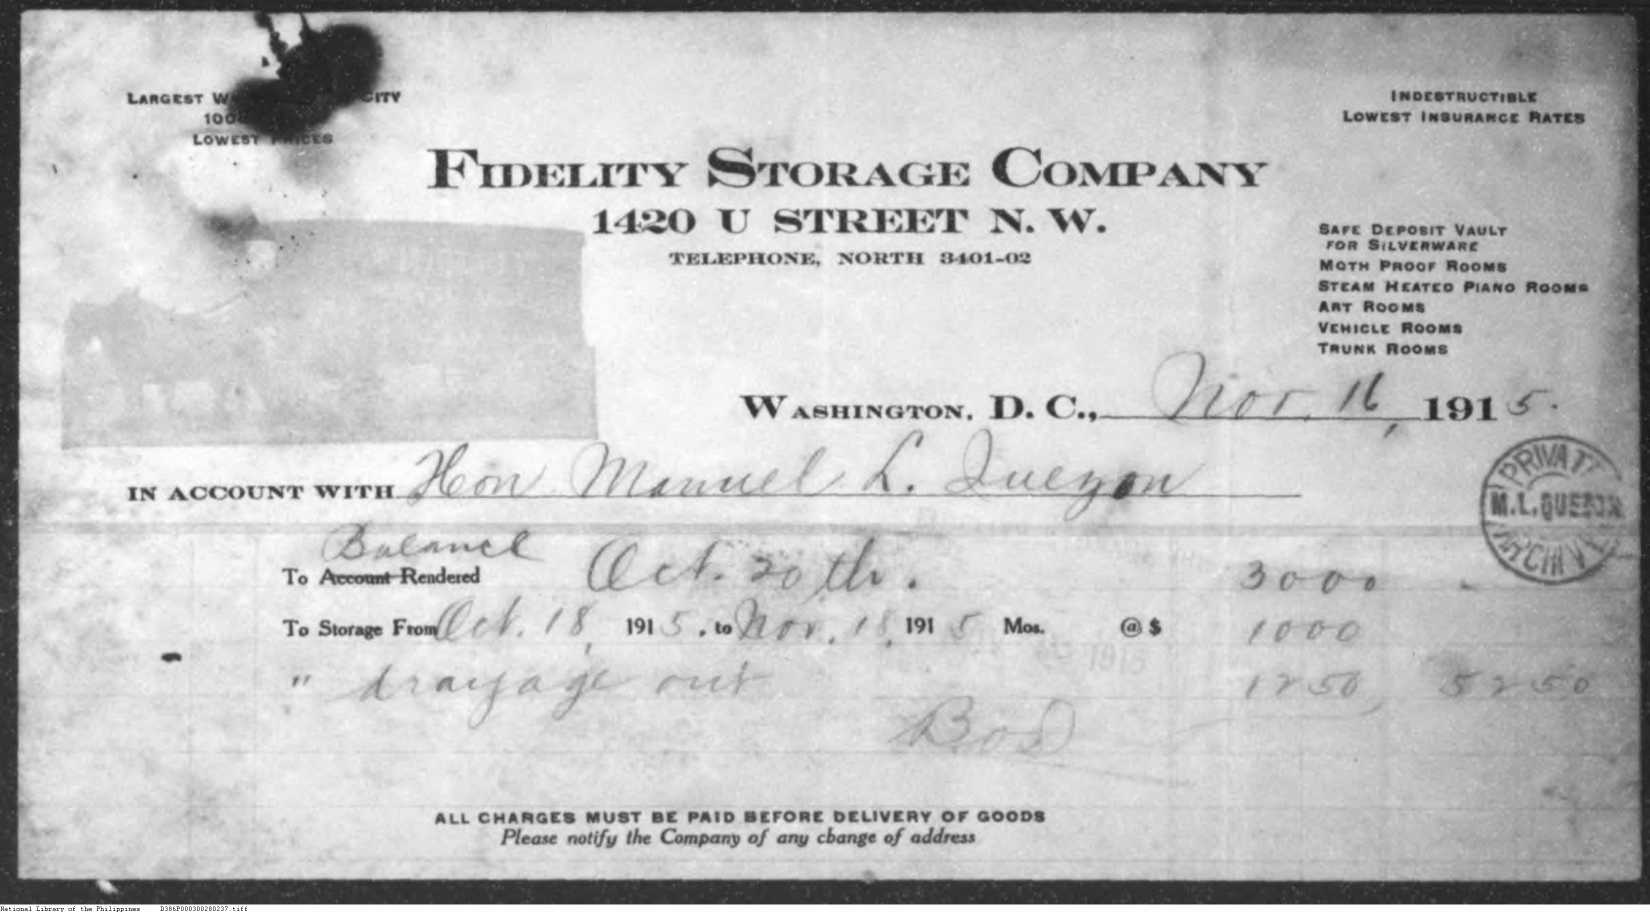 LARGEST W CITY
100
LOWEST PRICES
INDESTRUCTIBLE
LOWEST INSURANCE RATES
FIDELITY STORAGE COMPANY
1420 U STREET N. W.
TELEPHONE, NORTH 3401-02
SAFE DEPOSIT VAULT
FOR SILVERWARE
MOTH PROOF ROOMS
STEAM HEATED PIANO ROOMS
ART ROOMS
VEHICLE ROOMS
TRUNK ROOMS
WASHINGTON, D. C., Nov. 16, 1915.
IN ACCOUNT WITH Hon Manuel L. Quezon
PRIVATE
M.L.QUEZON
ARCHIVE
Balance
To Account Rendered Oct. 20th. 3000
To Storage From Oct. 18, 1915. to Nov. 18, 1915 Mos. @ $ 1000
" drayage out 1250 5250
ALL CHARGES MUST BE PAID BEFORE DELIVERY OF GOODS
Please notify the Company of any change of address
National Library of the Philippines D386P000300280237.tiff